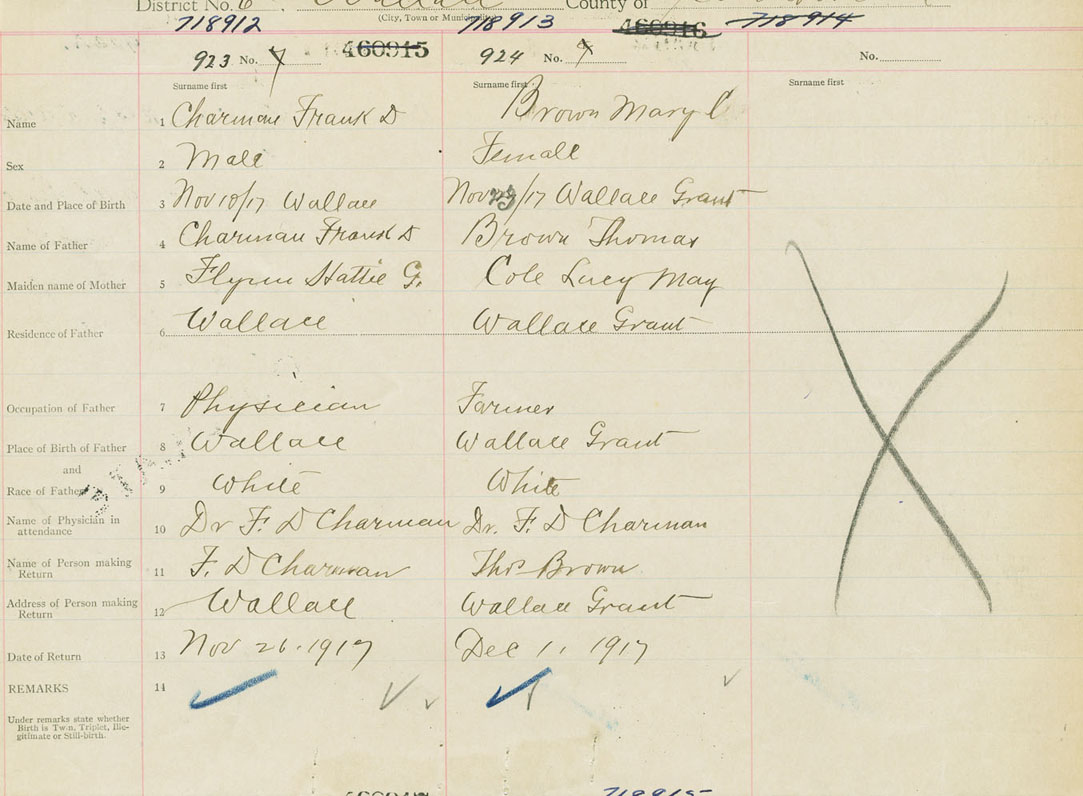 District No. 6 Wallace County of
(City, Town or Municipality)
718912 718913 718914
460915 460916
923 No. 7 924 No. No.
Surname first Surname first Surname first
Name 1 Charman Frank D Brown Mary C
Sex 2 Male Female
Date and Place of Birth 3 Nov 10/17 Wallace Nov 23/17 Wallace Grant
Name of Father 4 Charman Frank D Brown Thomas
Maiden name of Mother 5 Flynn Hattie G. Cole Lucy May
Residence of Father 6 Wallace Wallace Grant
Occupation of Father 7 Physician Farmer
Place of Birth of Father 8 Wallace Wallace Grant
and
Race of Father 9 White White
Name of Physician in
attendance 10 Dr F. D Charman Dr. F. D Charman
Name of Person making
Return 11 F. D Charman Thos Brown
Address of Person making
Return 12 Wallace Wallace Grant
Date of Return 13 Nov 26. 1917 Dec 1, 1917
REMARKS 14
Under remarks state whether
Birth is Twin, Triplet, Ille-
gitimate or Still-birth.
718915